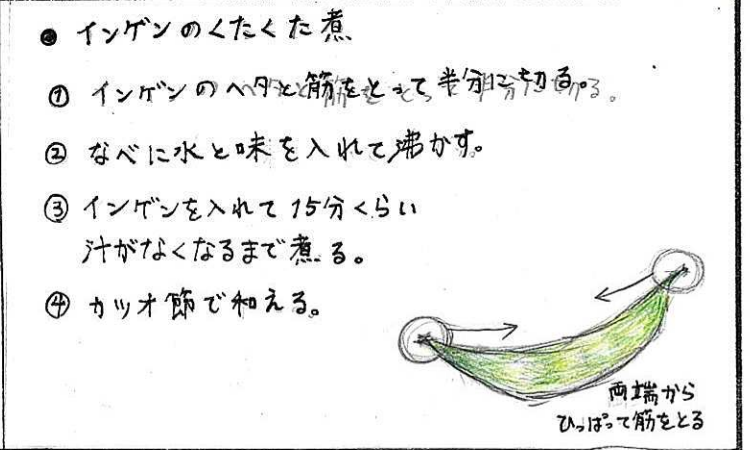 ● インゲンのくたくた煮
① インゲンのヘタと筋をとって半分に切る。
② なべに水と味を入れて沸かす。
③ インゲンを入れて15分くらい
汁がなくなるまで煮る。
④ カツオ節で和える。
両端から
ひっぱって筋をとる